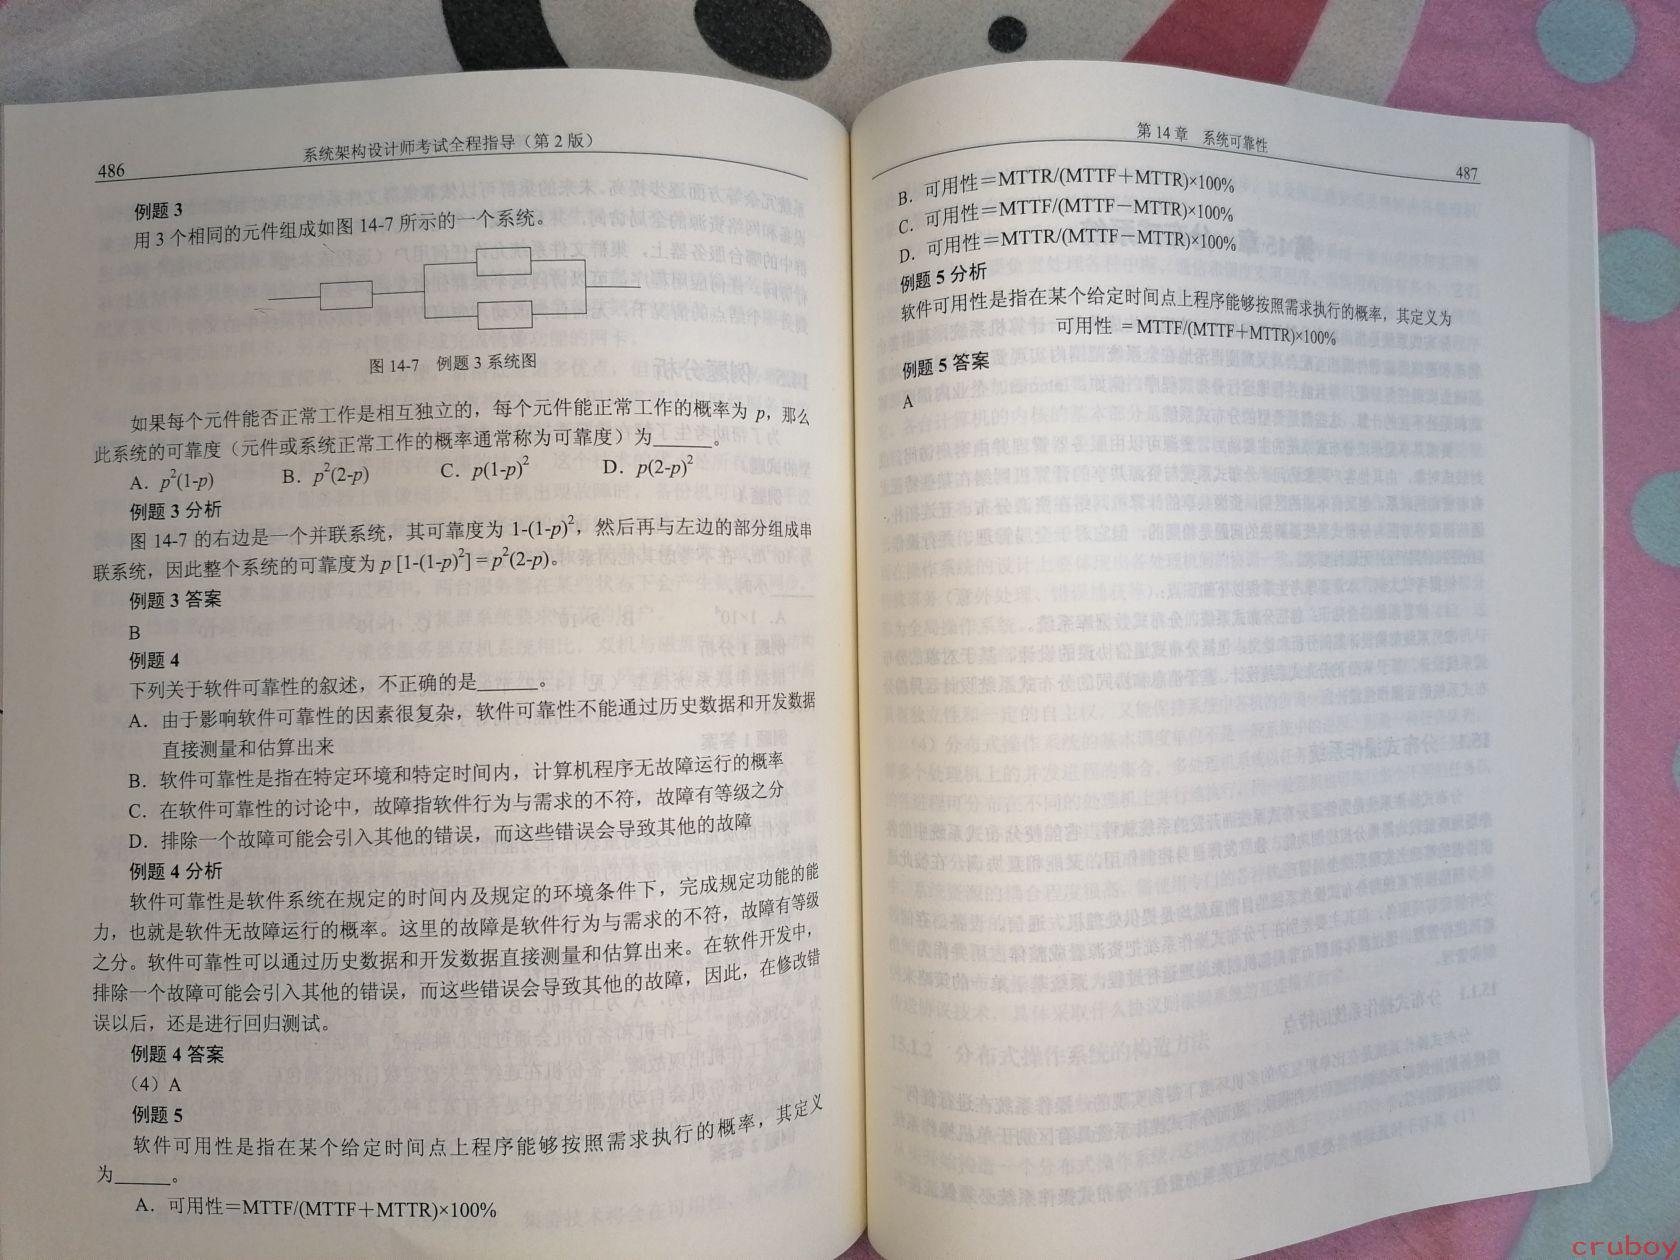 486
系统架构设计师考试全程指导（第2版）
例题3
用3个相同的元件组成如图14-7所示的一个系统。
图14-7 例题3系统图
如果每个元件能否正常工作是相互独立的，每个元件能正常工作的概率为p，那么
此系统的可靠度（元件或系统正常工作的概率通常称为可靠度）为______。
A．p²(1-p) B．p²(2-p) C．p(1-p)² D．p(2-p)²
例题3分析
图14-7的右边是一个并联系统，其可靠度为1-(1-p)²，然后再与左边的部分组成串
联系统，因此整个系统的可靠度为p [1-(1-p)²] = p²(2-p)。
例题3答案
B
例题4
下列关于软件可靠性的叙述，不正确的是______。
A．由于影响软件可靠性的因素很复杂，软件可靠性不能通过历史数据和开发数据
直接测量和估算出来
B．软件可靠性是指在特定环境和特定时间内，计算机程序无故障运行的概率
C．在软件可靠性的讨论中，故障指软件行为与需求的不符，故障有等级之分
D．排除一个故障可能会引入其他的错误，而这些错误会导致其他的故障
例题4分析
软件可靠性是软件系统在规定的时间内及规定的环境条件下，完成规定功能的能
力，也就是软件无故障运行的概率。这里的故障是软件行为与需求的不符，故障有等级
之分。软件可靠性可以通过历史数据和开发数据直接测量和估算出来。在软件开发中，
排除一个故障可能会引入其他的错误，而这些错误会导致其他的故障，因此，在修改错
误以后，还是进行回归测试。
例题4答案
（4）A
例题5
软件可用性是指在某个给定时间点上程序能够按照需求执行的概率，其定义
为______。
A．可用性＝MTTF/(MTTF＋MTTR)×100%
第14章 系统可靠性
487
B．可用性＝MTTR/(MTTF＋MTTR)×100%
C．可用性＝MTTF/(MTTF－MTTR)×100%
D．可用性＝MTTR/(MTTF－MTTR)×100%
例题5分析
软件可用性是指在某个给定时间点上程序能够按照需求执行的概率，其定义为
可用性 ＝MTTF/(MTTF＋MTTR)×100%
例题5答案
A
cruboy